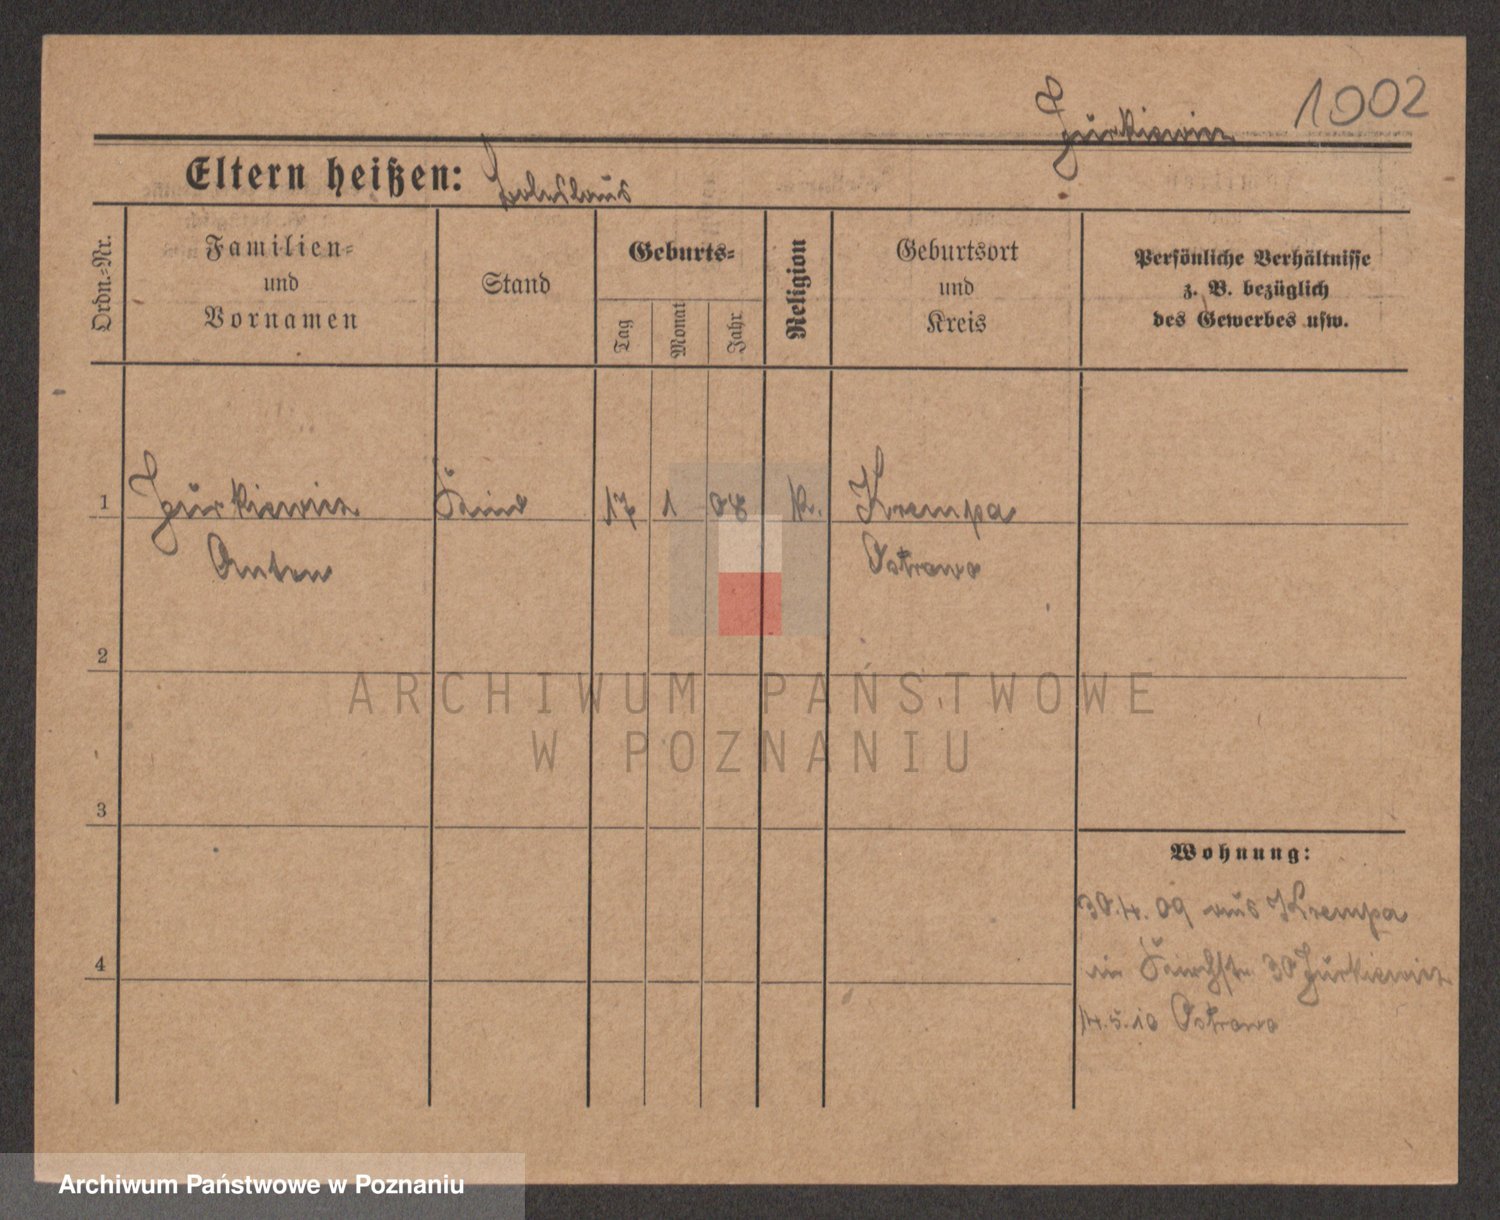 1002
Jurkiewicz
Eltern heißen:
Ordn.=Nr.
Familien=
und
Vornamen
Stand
Geburts=
Tag
Monat
Jahr
Religion
Geburtsort
und
Kreis
Persönliche Verhältnisse
z. B. bezüglich
des Gewerbes usw.
1
Jurkiewicz
17 1 08
k.
Krempa
Anton
Ostrowo
2
ARCHIWUM PAŃSTWOWE
W POZNANIU
3
Wohnung:
30.4.09 aus Krempa
30 Jurkiewicz
4
14.5.10 Ostrowo
Archiwum Państwowe w Poznaniu